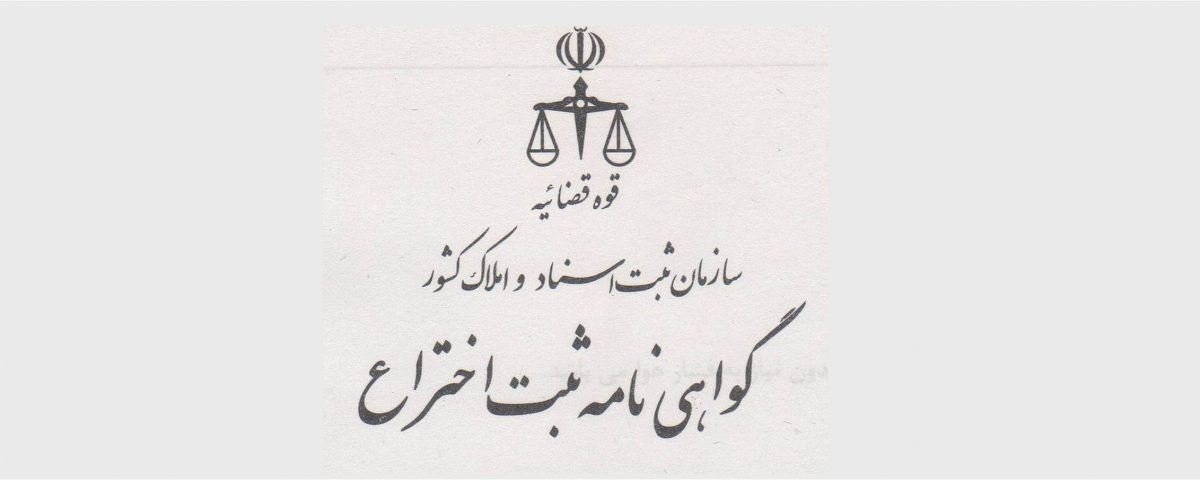 قوه قضائیه
سازمان ثبت اسناد و املاک کشور
گواهی نامه ثبت اختراع